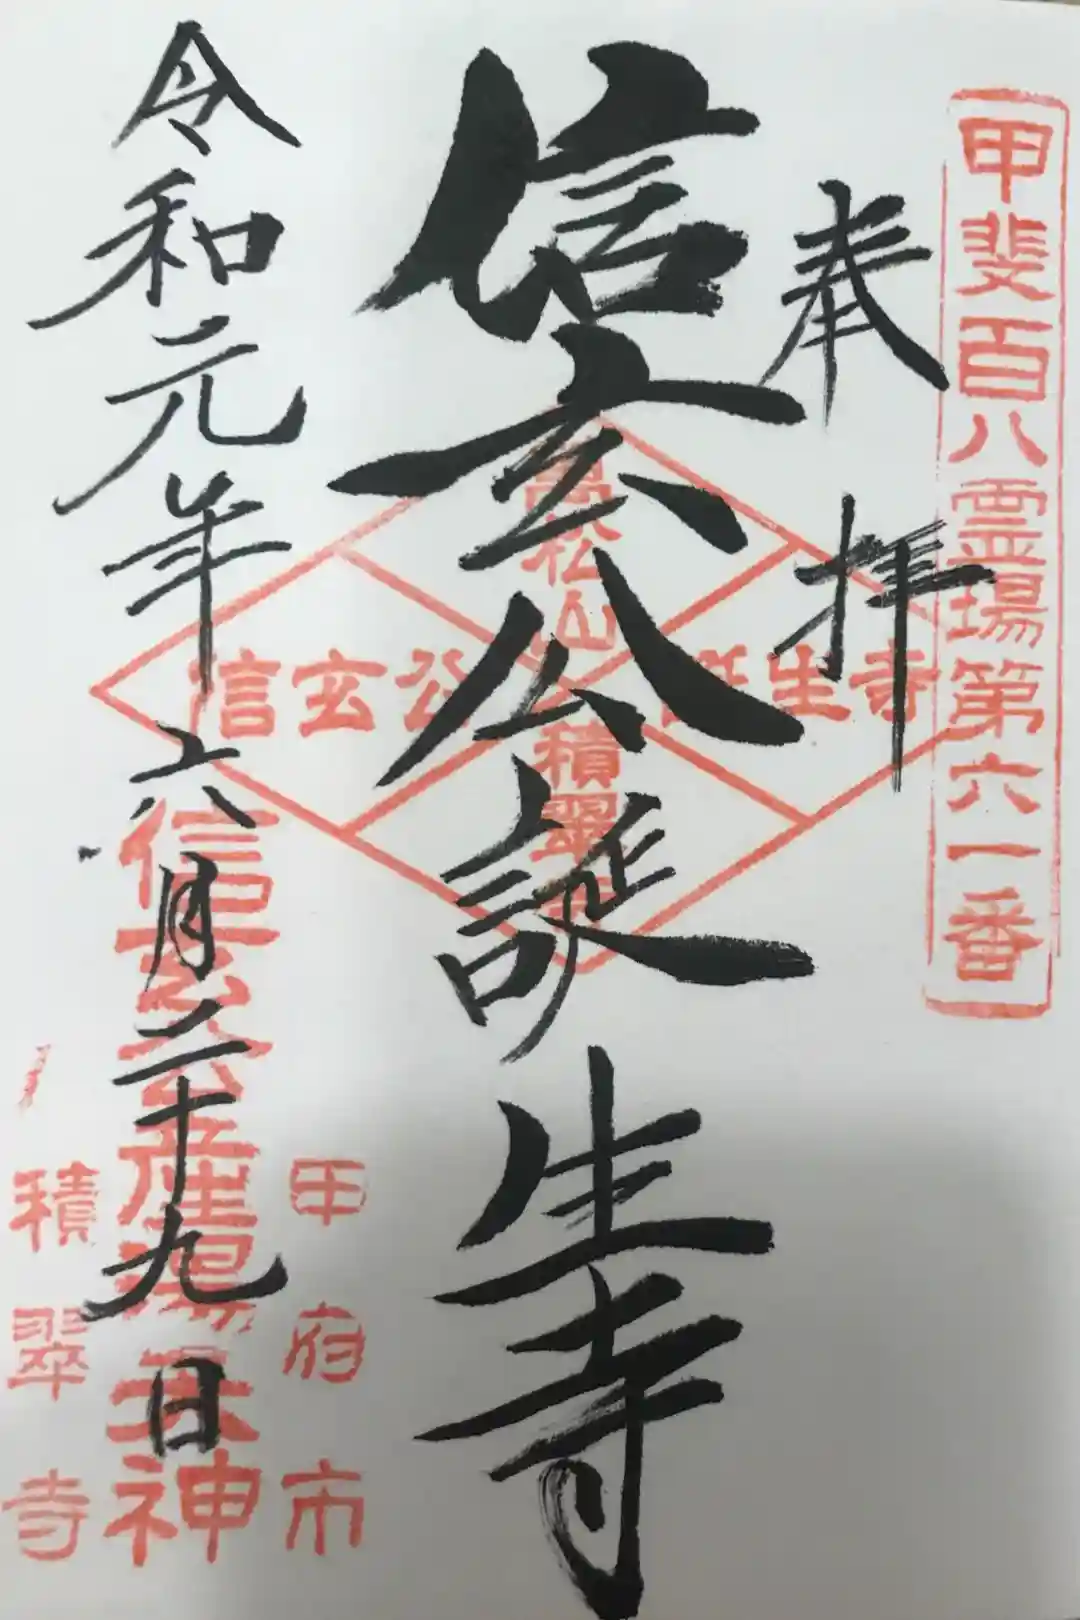 甲斐百八霊場第六一番
奉拝
信玄公誕生寺
萬松山
積翠寺
信玄公誕生寺
令和元年六月二十九日
甲府市
信玄公産湯天神
積翠寺